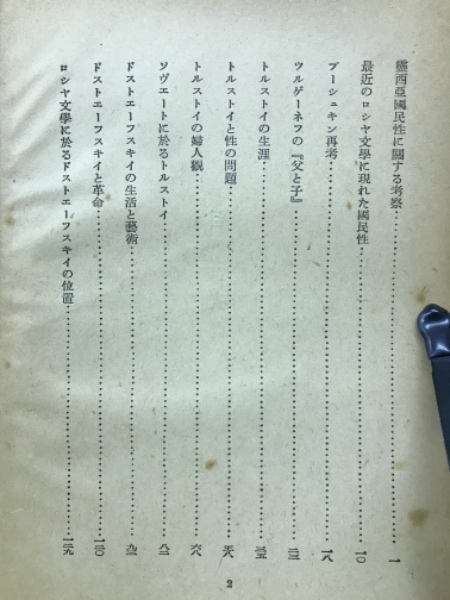 露西亞國民性に關する考察…………一
最近のロシヤ文學に現れた國民性…………一〇
プーシュキン再考…………一八
ツルゲーネフの『父と子』…………二三
トルストイの生涯…………三五
トルストイと性の問題…………五八
トルストイの婦人觀…………六八
ソヴェートに於るトルストイ…………八二
ドストエーフスキイの生活と藝術…………九二
ドストエーフスキイと革命…………一二〇
ロシヤ文學に於るドストエーフスキイの位置…………一二九
2